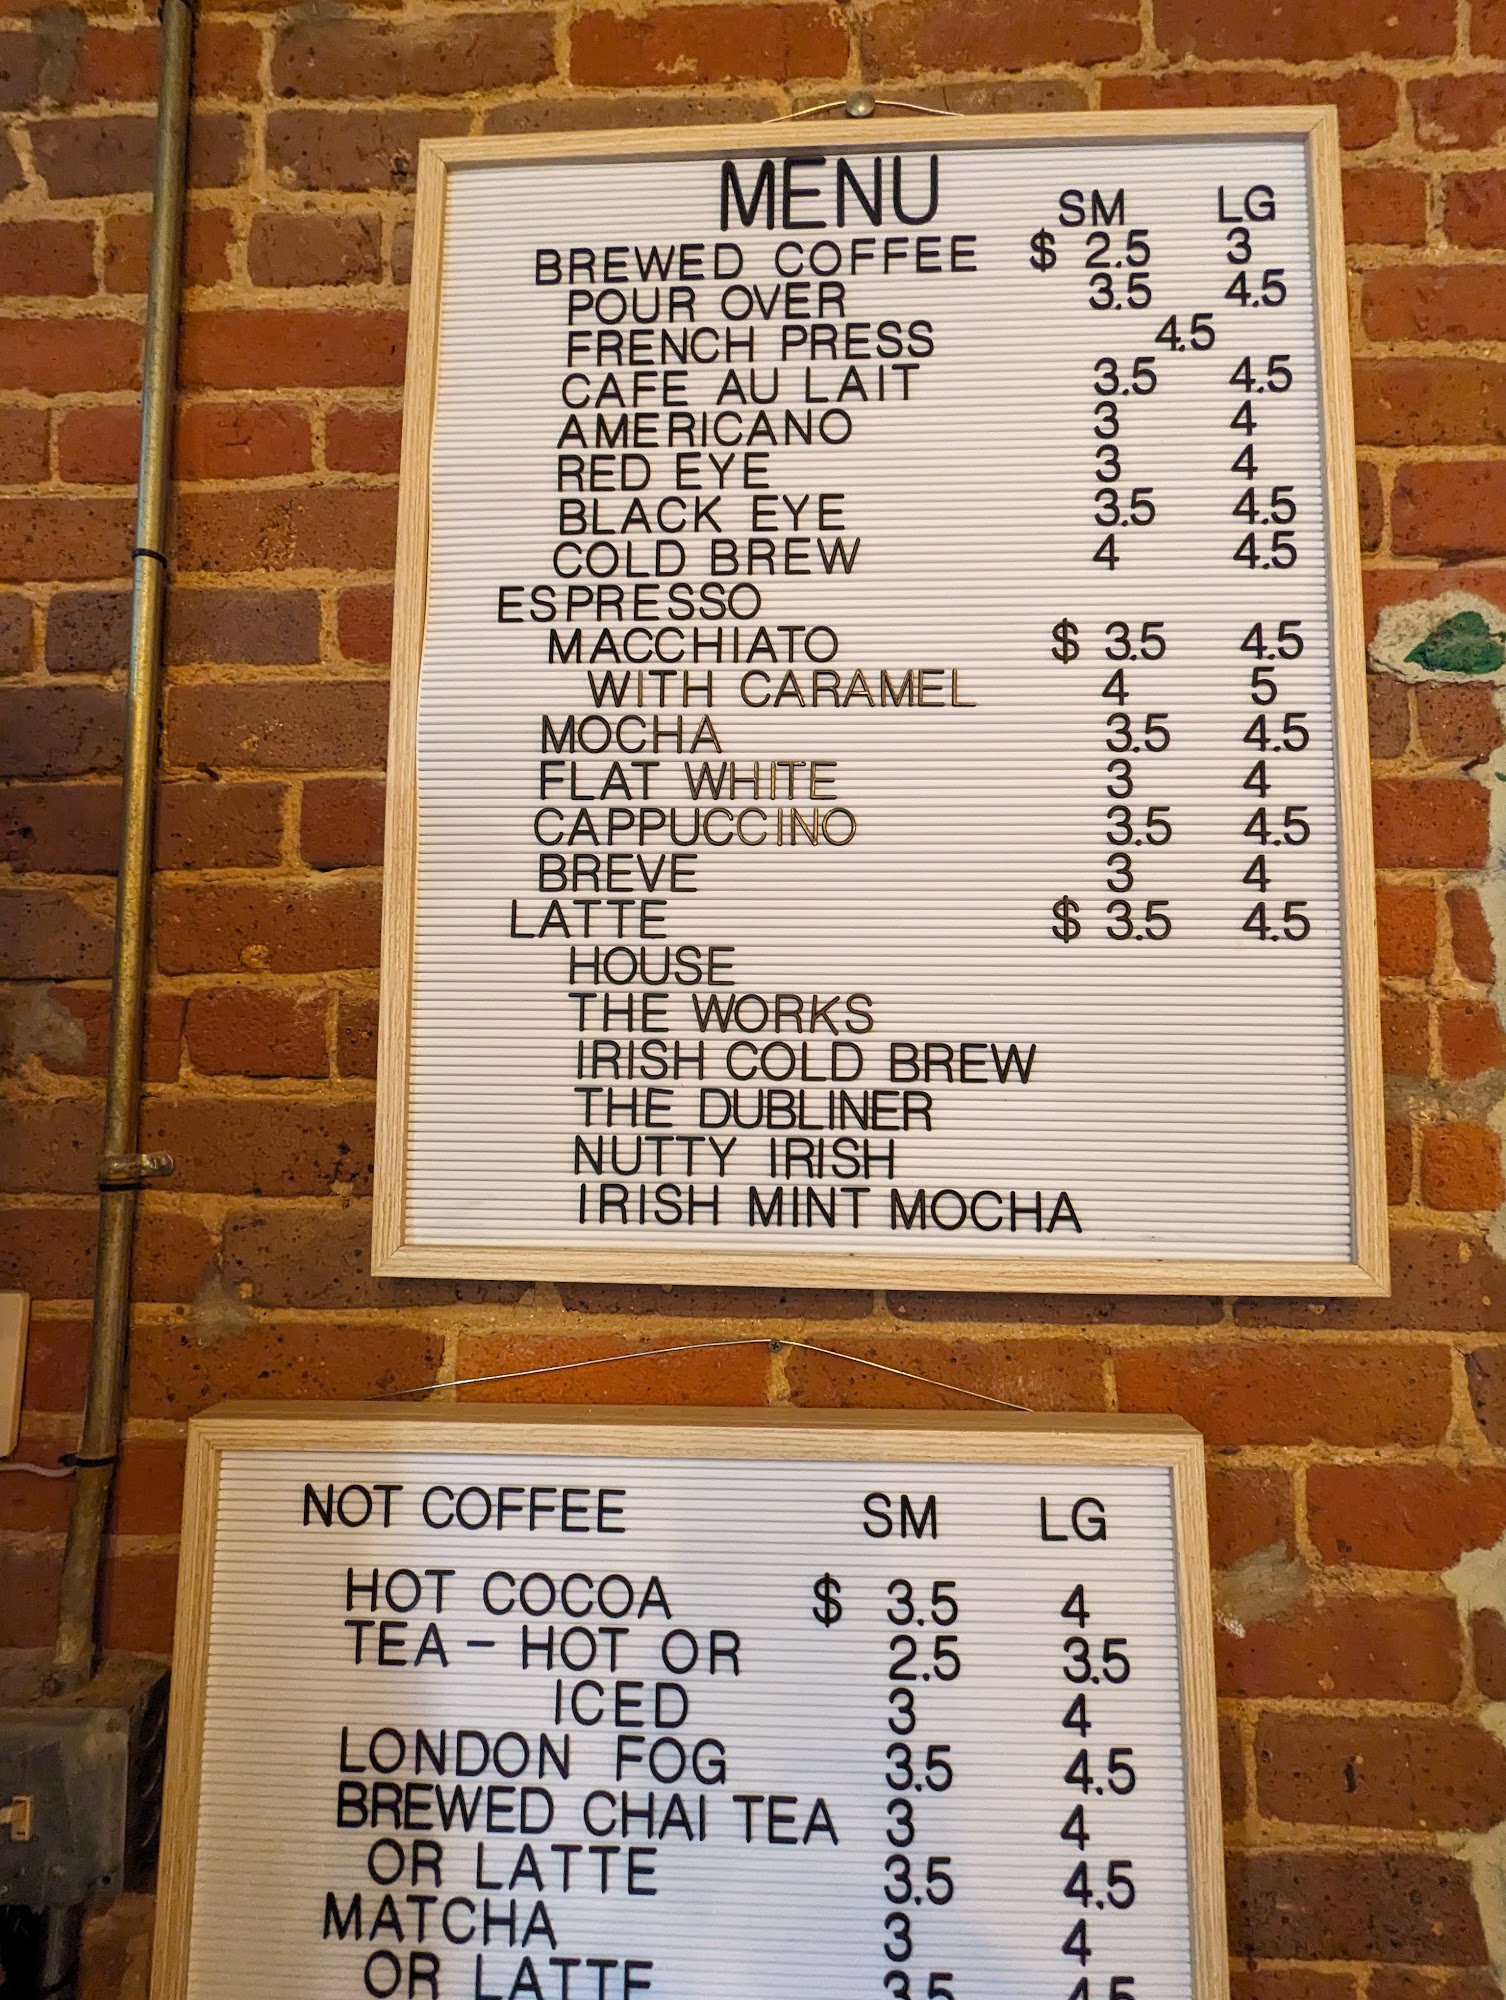 MENU SM LG
BREWED COFFEE $ 2.5 3
POUR OVER 3.5 4.5
FRENCH PRESS 4.5
CAFE AU LAIT 3.5 4.5
AMERICANO 3 4
RED EYE 3 4
BLACK EYE 3.5 4.5
COLD BREW 4 4.5
ESPRESSO
MACCHIATO $ 3.5 4.5
WITH CARAMEL 4 5
MOCHA 3.5 4.5
FLAT WHITE 3 4
CAPPUCCINO 3.5 4.5
BREVE 3 4
LATTE $ 3.5 4.5
HOUSE
THE WORKS
IRISH COLD BREW
THE DUBLINER
NUTTY IRISH
IRISH MINT MOCHA
NOT COFFEE SM LG
HOT COCOA $ 3.5 4
TEA - HOT OR 2.5 3.5
ICED 3 4
LONDON FOG 3.5 4.5
BREWED CHAI TEA 3 4
OR LATTE 3.5 4.5
MATCHA 3 4
OR LATTE 3.5 4.5